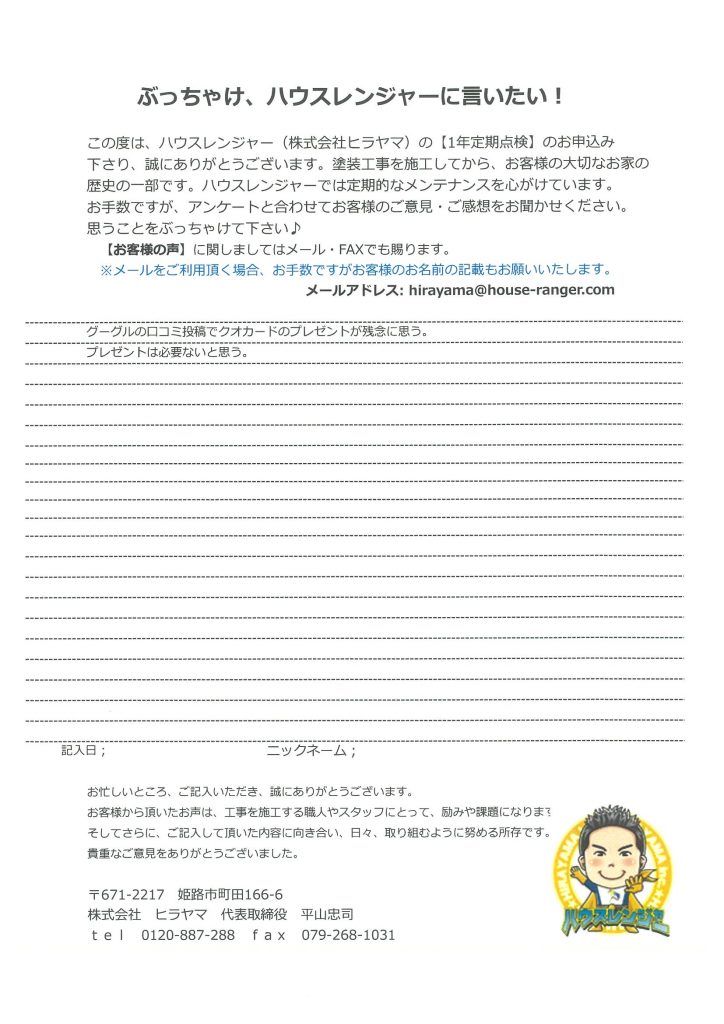 ぶっちゃけ、ハウスレンジャーに言いたい！
この度は、ハウスレンジャー（株式会社ヒラヤマ）の【1年定期点検】のお申込み
下さり、誠にありがとうございます。塗装工事を施工してから、お客様の大切なお家の
歴史の一部です。ハウスレンジャーでは定期的なメンテナンスを心がけています。
お手数ですが、アンケートと合わせてお客様のご意見・ご感想をお聞かせください。
思うことをぶっちゃけて下さい♪
【お客様の声】に関しましてはメール・FAXでも賜ります。
※メールをご利用頂く場合、お手数ですがお客様のお名前の記載もお願いいたします。
メールアドレス: hirayama@house-ranger.com
グーグルの口コミ投稿でクオカードのプレゼントが残念に思う。
プレゼントは必要ないと思う。
記入日；　ニックネーム；
お忙しいところ、ご記入いただき、誠にありがとうございます。
お客様から頂いたお声は、工事を施工する職人やスタッフにとって、励みや課題になります
そしてさらに、ご記入して頂いた内容に向き合い、日々、取り組むように努める所存です。
貴重なご意見をありがとうございました。
〒671-2217　姫路市町田166-6
株式会社　ヒラヤマ　代表取締役　平山忠司
ｔｅｌ　0120-887-288　ｆａｘ　079-268-1031
HIRAYAMA
ハウスレンジャー